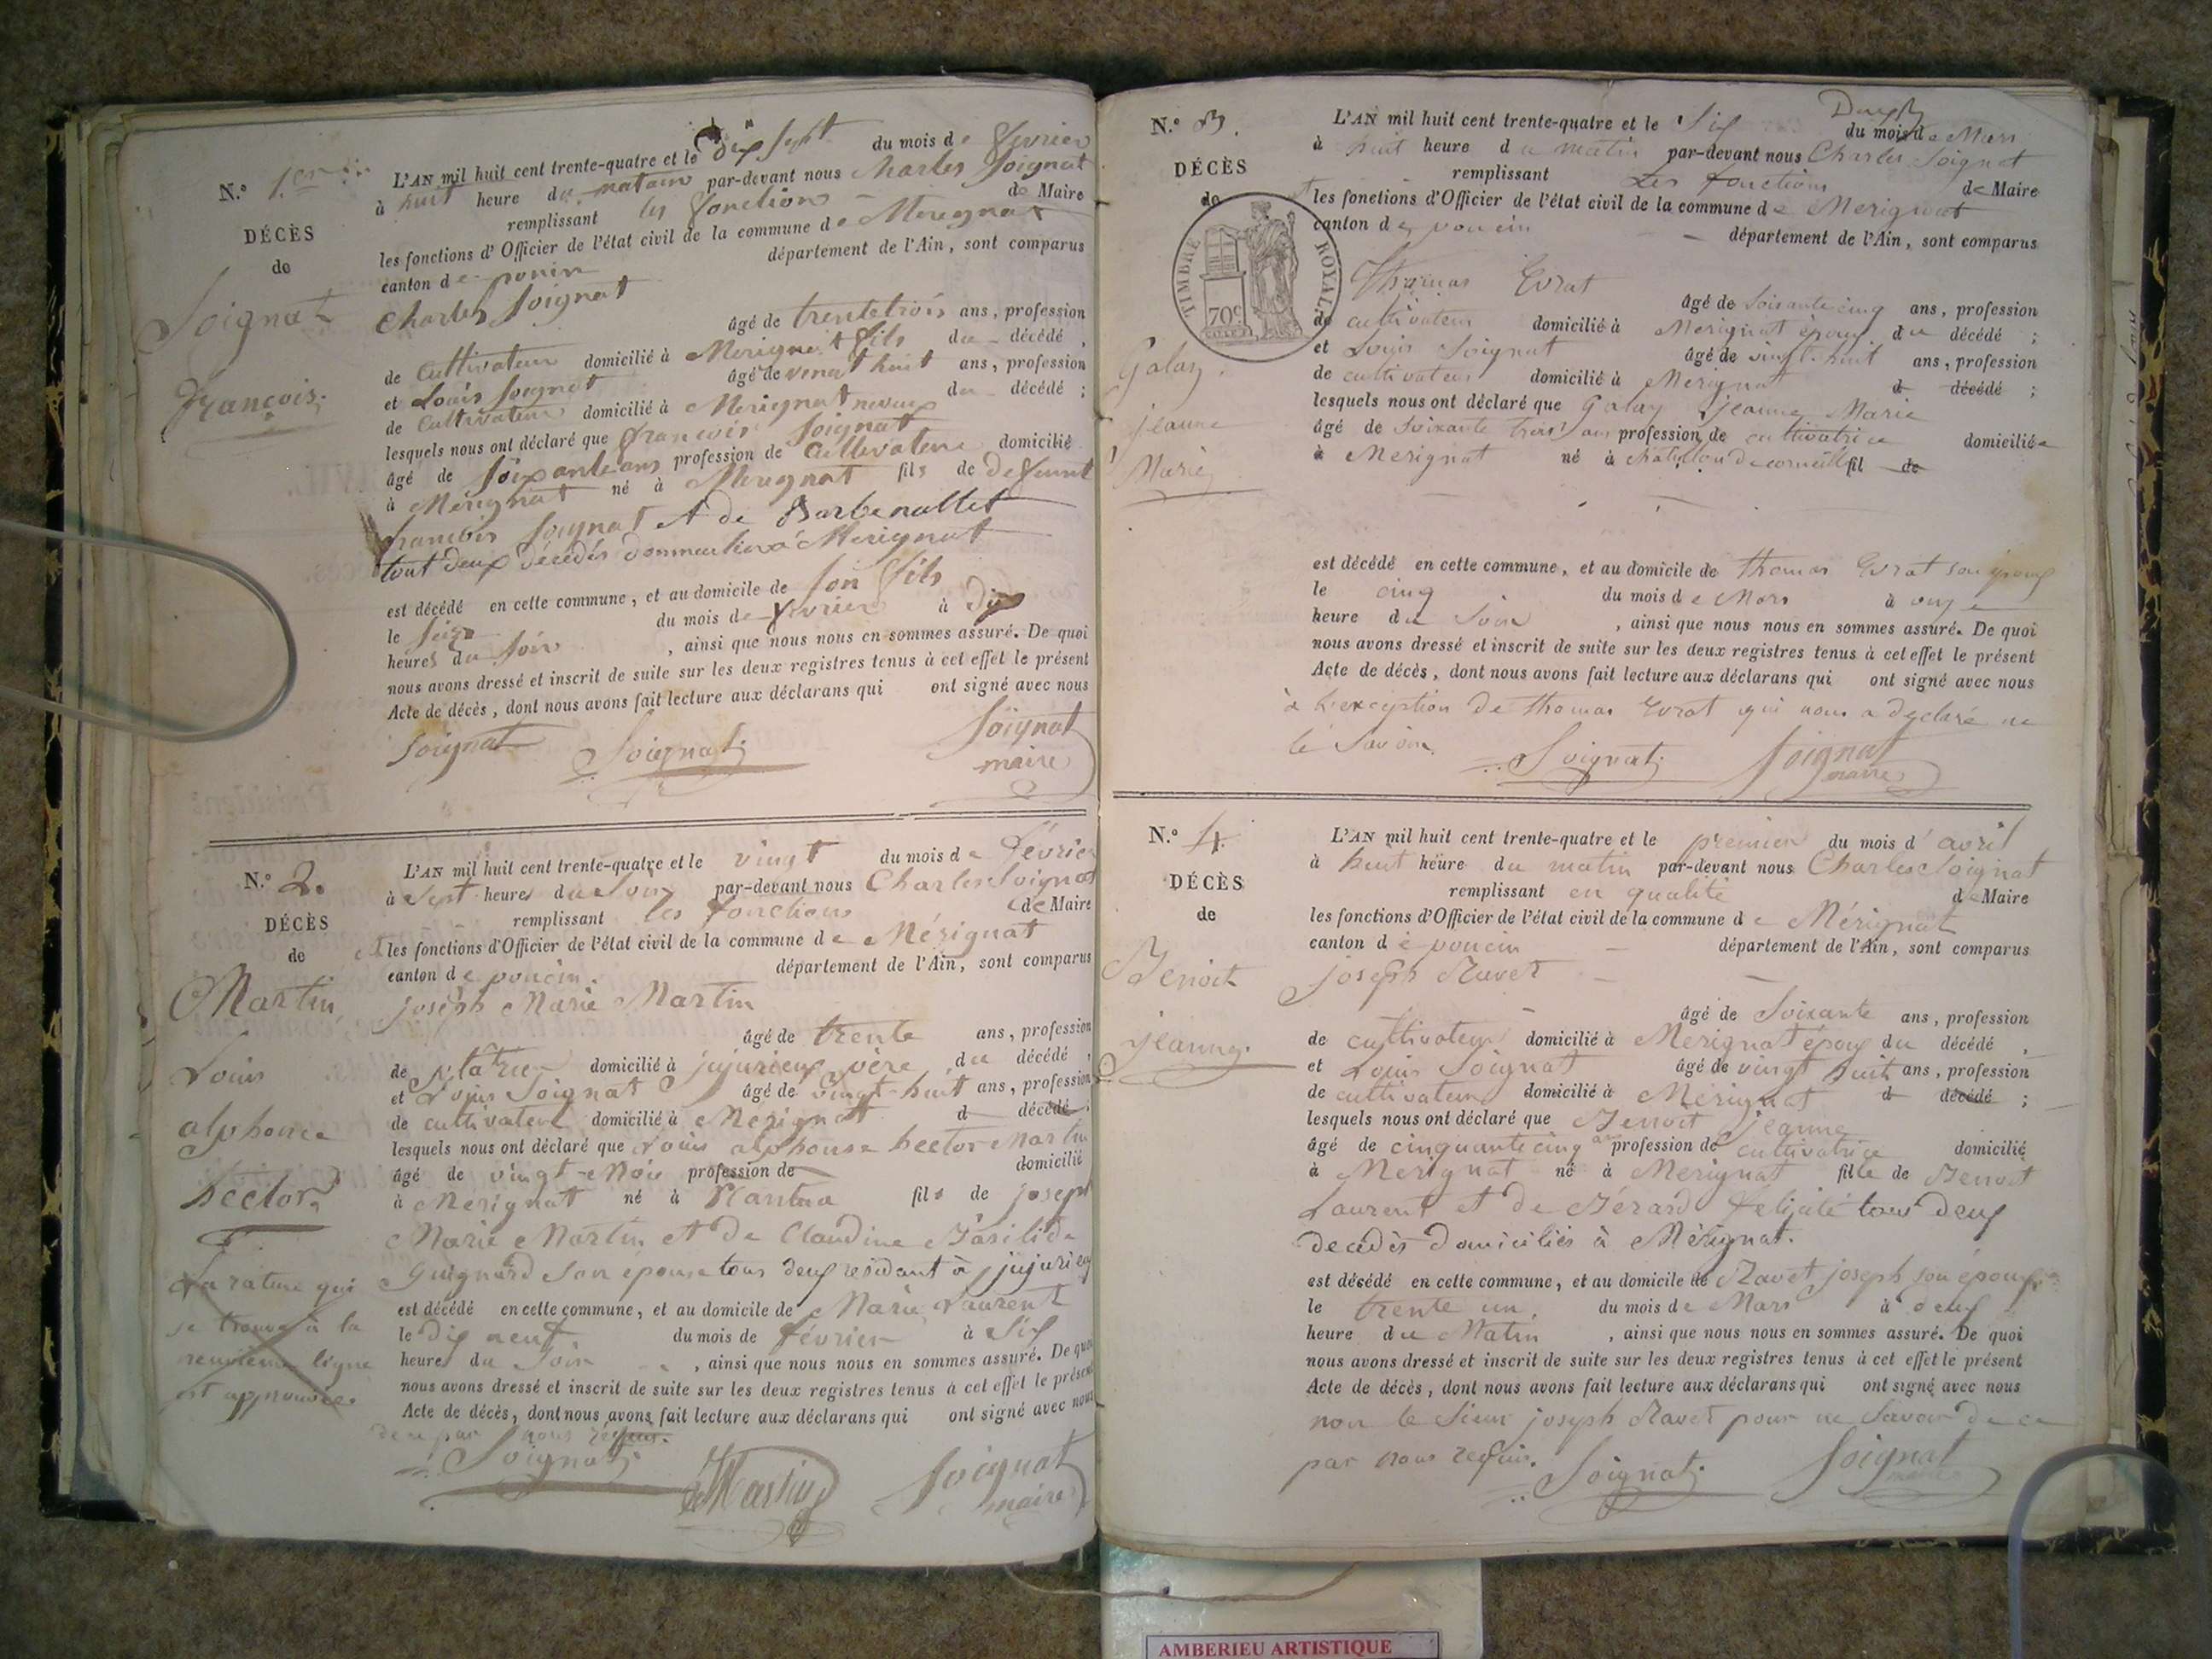 N.º 1.er
DÉCÈS
de
Soignat
François.
L'AN mil huit cent trente-quatre et le dix sept du mois de fevrier
à huit heure du matain par-devant nous Charles Soignat
remplissant les fonctions de Maire
les fonctions d'Officier de l'état civil de la commune de Merignat
canton de poncin département de l'Ain, sont comparus
Charles Soignat
âgé de trentetrois ans, profession
de Cultivateur domicilié à Merignat fils du décédé,
et Louis Soignat âgé de vingt huit ans, profession
de Cultivateur domicilié à Merignat neveux du décédé;
lesquels nous ont déclaré que françois Soignat
âgé de soixante ans profession de Cultivateur domicilié
à Merignat né à Merignat fils de deffunt
francois Soignat et de Barbe nallet
tout deux décédés à Merignat
est décédé en cette commune, et au domicile de son fils
le seize du mois de fevrier à dix
heures du soir, ainsi que nous nous en sommes assuré. De quoi
nous avons dressé et inscrit de suite sur les deux registres tenus à cet effet le présent
Acte de décès, dont nous avons fait lecture aux déclarans qui ont signé avec nous
Soignat Soignat Soignat
maire
N.º 2.
DÉCÈS
de
Martin
Louis
alphonse
hector
La rature qui
se trouve à la
neuvieme ligne
est approuvée
L'AN mil huit cent trente-quatre et le vingt du mois de Février
à sept heures du Soir par-devant nous Charles Soignat
remplissant les fonctions de Maire
et les fonctions d'Officier de l'état civil de la commune de Mérignat
canton de poncin. département de l'Ain, sont comparus
joseph Marie Martin
âgé de trente ans, profession
de domicilié à jujurieux père du décédé,
et Louis Soignat âgé de vingt-huit ans, profession
de cultivateur domicilié à Merignat d décédé;
lesquels nous ont déclaré que Louis alphonse hector Martin
âgé de vingt mois profession de domicilié
à Merignat né à Nantua fils de joseph
Marie Martin et de Claudine Basilide
Guignard son épouse tous deux résidant à jujurieux
est décédé en cette commune, et au domicile de Marie Laurent
le dix neuf du mois de février à six
heures du Soir, ainsi que nous nous en sommes assuré. De quoi
nous avons dressé et inscrit de suite sur les deux registres tenus à cet effet le présent
Acte de décès, dont nous avons fait lecture aux déclarans qui ont signé avec nous
de ce par nous requis.
Soignat Martin Soignat
maire
N.º 3.
DÉCÈS
de
TIMBRE ROYAL.
70c
Galay.
jeanne
Marie
L'AN mil huit cent trente-quatre et le Six du mois de Mars
à huit heure du matin par-devant nous Charles Soignat
remplissant Les fonctions de Maire
et les fonctions d'Officier de l'état civil de la commune de Merignat
canton de poncin département de l'Ain, sont comparus
Thomas Evrat
âgé de Soixante cinq ans, profession
de cultivateur domicilié à Merignat époux du décédé;
et Louis Soignat âgé de vingt-huit ans, profession
de cultivateur domicilié à Merignat d décédé;
lesquels nous ont déclaré que Galay jeanne Marie
âgé de Soixante trois ans profession de cultivatrice domiciliée
à Merignat né à chatillon de corneille fil de
est décédé en cette commune, et au domicile de thomas Evrat son époux
le cinq du mois de Mars à onze
heure du Soir, ainsi que nous nous en sommes assuré. De quoi
nous avons dressé et inscrit de suite sur les deux registres tenus à cet effet le présent
Acte de décès, dont nous avons fait lecture aux déclarans qui ont signé avec nous
à l'exception de thomas Evrat qui nous a declaré ne
le Savoir.
Soignat Soignat
maire
N.º 4.
DÉCÈS
de
Benoit
jeanne.
L'AN mil huit cent trente-quatre et le premier du mois d'avril
à huit heure du matin par-devant nous Charles Soignat
remplissant en qualité de Maire
les fonctions d'Officier de l'état civil de la commune de Mérignat
canton de poncin département de l'Ain, sont comparus
joseph Ravet
âgé de Soixante ans, profession
de cultivateur domicilié à Merignat époux du décédé,
et Louis Soignat âgé de vingt huit ans, profession
de cultivateur domicilié à Mérignat d décédé;
lesquels nous ont déclaré que Benoit jeanne
âgé de cinquante cinq ans profession de cultivatrice domicilié
à Merignat né à Merignat fille de Benoit
Laurent et de Bérard félicité tous deux
decédés domiciliés à Mérignat.
est décédé en cette commune, et au domicile de Ravet joseph son époux
le trente un. du mois de Mars à deux
heure du Matin, ainsi que nous nous en sommes assuré. De quoi
nous avons dressé et inscrit de suite sur les deux registres tenus à cet effet le présent
Acte de décès, dont nous avons fait lecture aux déclarans qui ont signé avec nous
non le Sieur joseph Ravet pour ne Savoir de ce
par nous requis.
Soignat Soignat
maire
AMBERIEU ARTISTIQUE